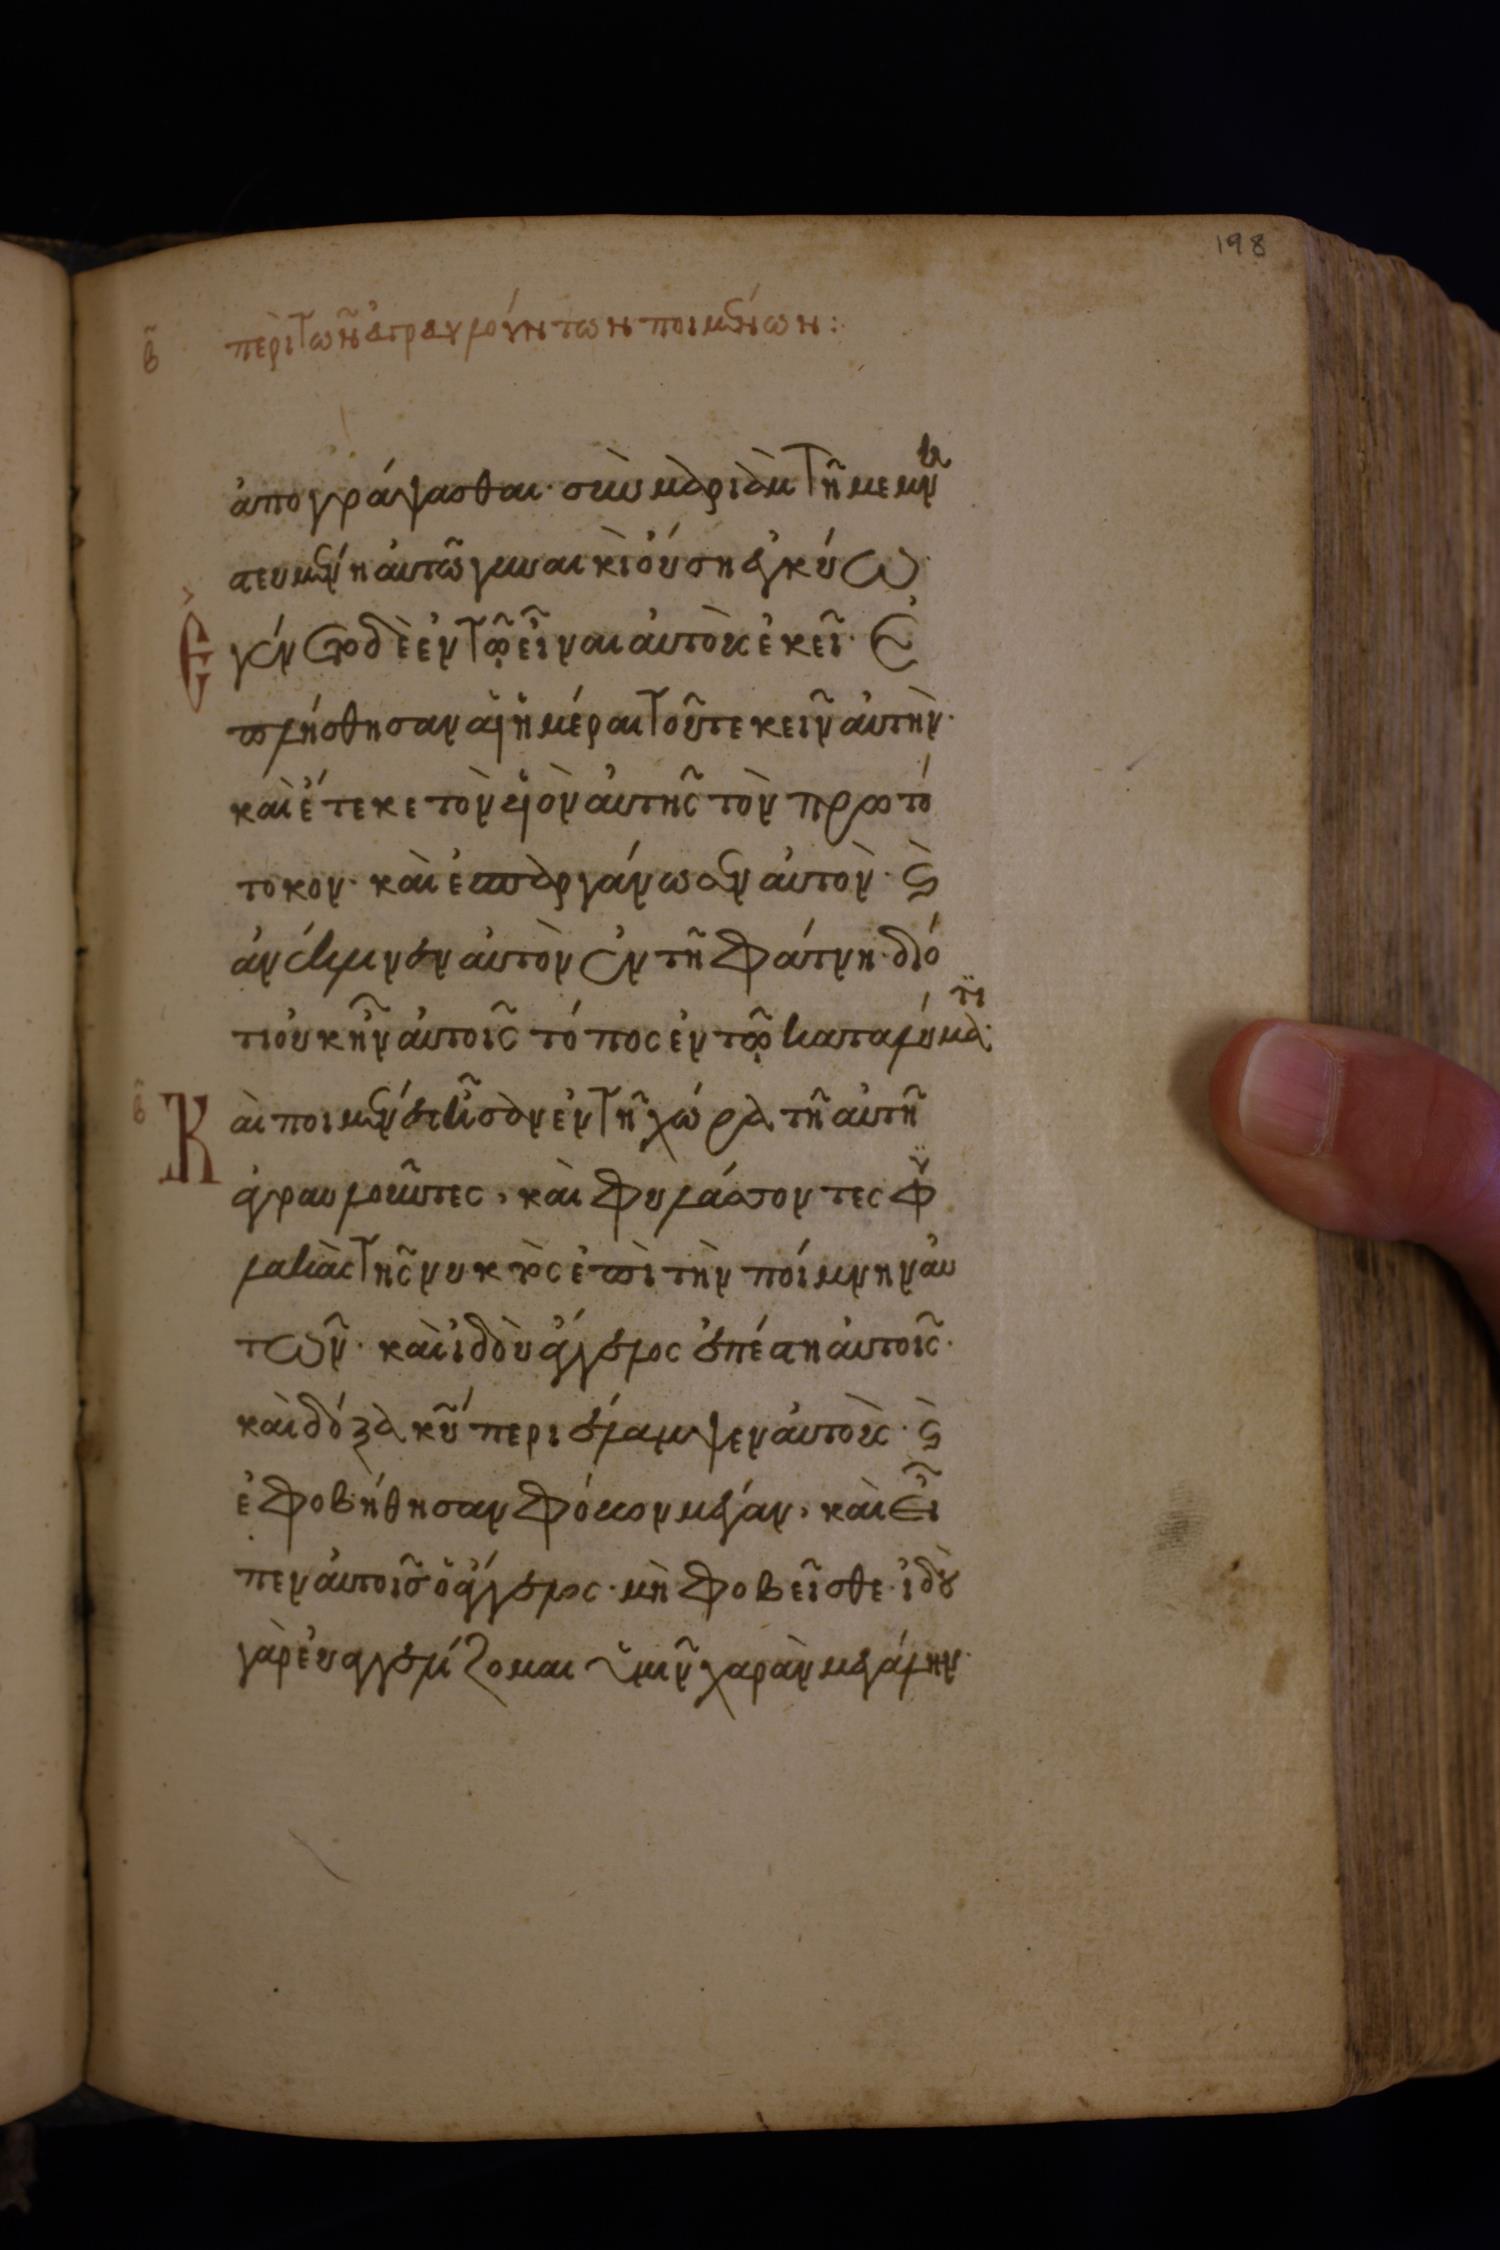 198
β περὶ τῶν ἀγραυλούντων ποιμένων:
ἀπογράψασθαι· σὺν μαριὰμ τῆ μεμνη
στευμένη αὐτῶ γυναικὶ οὔση ἐγκύω·
Ἐγένετο δὲ ἐν τῶ εἶναι αὐτοὺς ἐκεῖ· ἐ
πλήσθησαν αἱ ἡμέραι τοῦ τεκεῖν αὐτήν·
καὶ ἔτεκε τὸν υἱὸν αὐτῆς τὸν πρωτό
τοκον· καὶ ἐσπαργάνωσεν αὐτὸν· καὶ
ἀνέκλινεν αὐτὸν ἐν τῆ φάτνη· διό
τι οὐκ ἦν αὐτοῖς τόπος ἐν τῶ καταλύματι·
β Καὶ ποιμένες ἦσαν ἐν τῆ χώρα τῆ αὐτῆ
ἀγραυλοῦντες, καὶ φυλάσσοντες φυ
λακὰς τῆς νυκτὸς ἐπὶ τὴν ποίμνην αὐ
τῶν· καὶ ἰδοὺ ἄγγελος ἐπέστη αὐτοῖς·
καὶ δόξα κυ περιέλαμψεν αὐτοὺς· καὶ
ἐφοβήθησαν φόβον μέγαν, καὶ εἶ
πεν αὐτοῖς ὁ ἄγγελος· μὴ φοβεῖσθε· ἰδοὺ
γὰρ εὐαγγελίζομαι ὑμῖν χαρὰν μεγάλην·